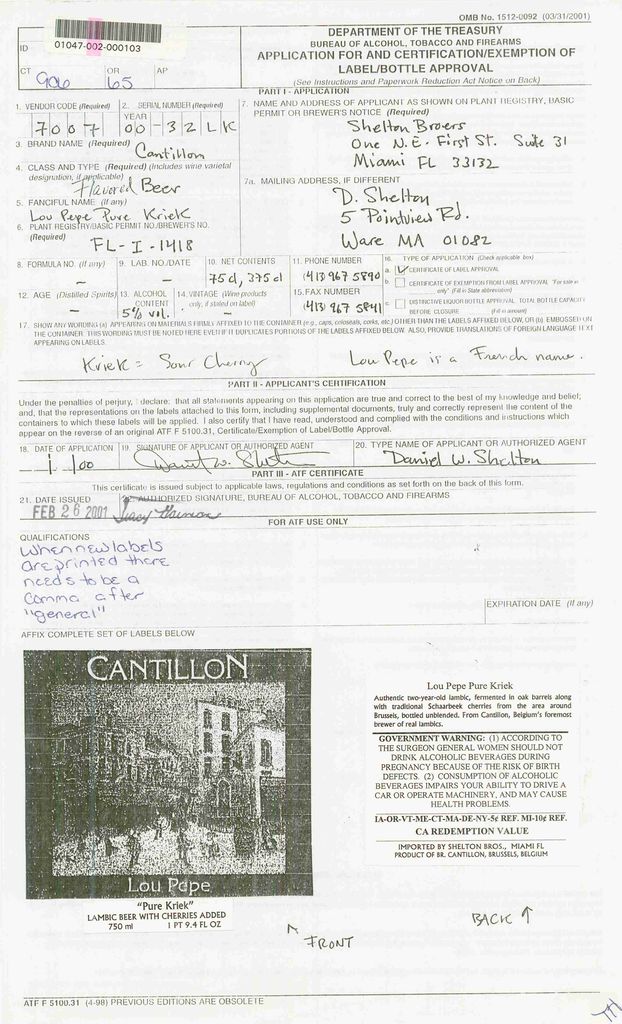 OMB No. 1512-0092 (03/31/2001)
01047-002-000103
ID
CT OR AP
906 65
DEPARTMENT OF THE TREASURY
BUREAU OF ALCOHOL, TOBACCO AND FIREARMS
APPLICATION FOR AND CERTIFICATION/EXEMPTION OF
LABEL/BOTTLE APPROVAL
(See Instructions and Paperwork Reduction Act Notice on Back)
PART I - APPLICATION
1. VENDOR CODE (Required)
7007
2. SERIAL NUMBER (Required)
YEAR
00-32LK
3. BRAND NAME (Required)
Cantillon
4. CLASS AND TYPE (Required) (Includes wine varietal
designation, if applicable)
Flavored Beer
5. FANCIFUL NAME (If any)
Lou Pepe Pure Kriek
6. PLANT REGISTRY/BASIC PERMIT NO./BREWER'S NO.
(Required)
FL-I-1418
7. NAME AND ADDRESS OF APPLICANT AS SHOWN ON PLANT REGISTRY, BASIC
PERMIT OR BREWER'S NOTICE (Required)
Shelton Broers
One N.E. First St. Suite 31
Miami FL 33132
7a. MAILING ADDRESS, IF DIFFERENT
D. Shelton
5 Pointview Rd.
Ware MA 01082
8. FORMULA NO. (If any)
–
9. LAB. NO./DATE
–
10. NET CONTENTS
75cl, 375cl
11. PHONE NUMBER
(413) 967 5890
12. AGE (Distilled Spirits)
–
13. ALCOHOL
CONTENT
5% vol.
14. VINTAGE (Wine products
only, if stated on label)
–
15. FAX NUMBER
(413) 967 5841
16. TYPE OF APPLICATION (Check applicable box)
a. CERTIFICATE OF LABEL APPROVAL
b. CERTIFICATE OF EXEMPTION FROM LABEL APPROVAL "For sale in
only" (Fill in State abbreviation)
c. DISTINCTIVE LIQUOR BOTTLE APPROVAL. TOTAL BOTTLE CAPACITY
BEFORE CLOSURE (Fill in amount)
17. SHOW ANY WORDING (a) APPEARING ON MATERIALS FIRMLY AFFIXED TO THE CONTAINER (e.g., caps, celoseals, corks, etc.) OTHER THAN THE LABELS AFFIXED BELOW, OR (b) EMBOSSED ON
THE CONTAINER. THIS WORDING MUST BE NOTED HERE EVEN IF IT DUPLICATES PORTIONS OF THE LABELS AFFIXED BELOW. ALSO, PROVIDE TRANSLATIONS OF FOREIGN LANGUAGE TEXT
APPEARING ON LABELS.
Kriek = Sour Cherry Lou Pepe is a French name.
PART II - APPLICANT'S CERTIFICATION
Under the penalties of perjury, I declare: that all statements appearing on this application are true and correct to the best of my knowledge and belief;
and, that the representations on the labels attached to this form, including supplemental documents, truly and correctly represent the content of the
containers to which these labels will be applied. I also certify that I have read, understood and complied with the conditions and instructions which
appear on the reverse of an original ATF F 5100.31, Certificate/Exemption of Label/Bottle Approval.
18. DATE OF APPLICATION
1/00
19. SIGNATURE OF APPLICANT OR AUTHORIZED AGENT
20. TYPE NAME OF APPLICANT OR AUTHORIZED AGENT
Daniel W. Shelton
PART III - ATF CERTIFICATE
This certificate is issued subject to applicable laws, regulations and conditions as set forth on the back of this form.
21. DATE ISSUED
FEB 26 2001
22. AUTHORIZED SIGNATURE, BUREAU OF ALCOHOL, TOBACCO AND FIREARMS
FOR ATF USE ONLY
QUALIFICATIONS
When new labels
are printed there
needs to be a
comma after
"general"
EXPIRATION DATE (If any)
AFFIX COMPLETE SET OF LABELS BELOW
CANTILLON
Lou Pepe
"Pure Kriek"
LAMBIC BEER WITH CHERRIES ADDED
750 ml 1 PT 9.4 FL OZ
FRONT
Lou Pepe Pure Kriek
Authentic two-year-old lambic, fermented in oak barrels along
with traditional Schaarbeek cherries from the area around
Brussels, bottled unblended. From Cantillon, Belgium's foremost
brewer of real lambics.
GOVERNMENT WARNING: (1) ACCORDING TO
THE SURGEON GENERAL WOMEN SHOULD NOT
DRINK ALCOHOLIC BEVERAGES DURING
PREGNANCY BECAUSE OF THE RISK OF BIRTH
DEFECTS. (2) CONSUMPTION OF ALCOHOLIC
BEVERAGES IMPAIRS YOUR ABILITY TO DRIVE A
CAR OR OPERATE MACHINERY, AND MAY CAUSE
HEALTH PROBLEMS.
IA-OR-VT-ME-CT-MA-DE-NY-5¢ REF. MI-10¢ REF.
CA REDEMPTION VALUE
IMPORTED BY SHELTON BROS., MIAMI FL
PRODUCT OF BR. CANTILLON, BRUSSELS, BELGIUM
BACK
ATF F 5100.31 (4-98) PREVIOUS EDITIONS ARE OBSOLETE